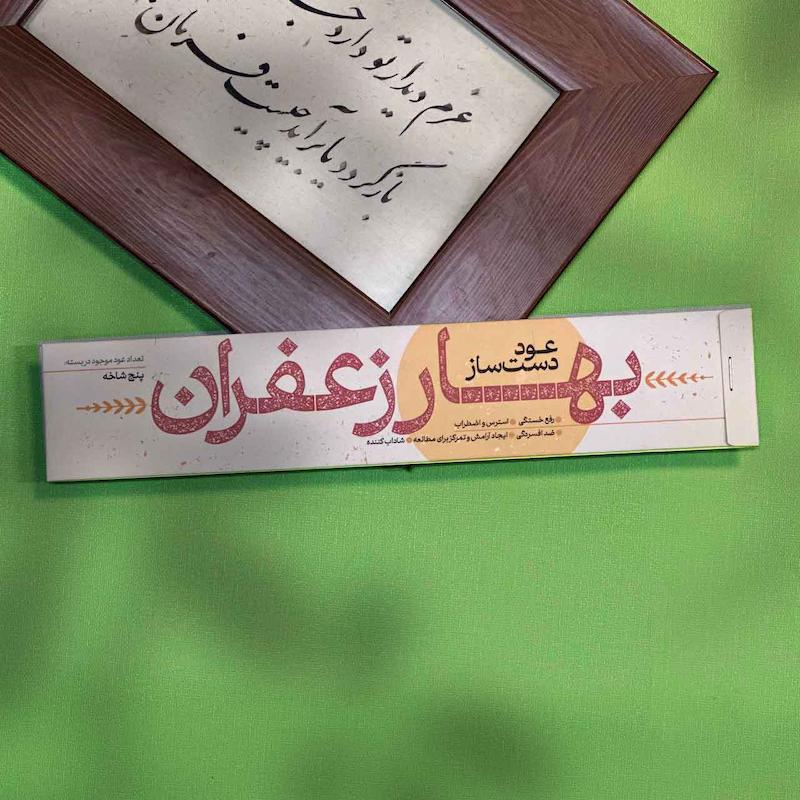 عزم دیدار تو دارد
بازگردد یا برآید چیست فرمان
عود
دست‌ساز
بهار زعفران
رفع خستگی • استرس و اضطراب
ضد افسردگی • ایجاد آرامش و تمرکز برای مطالعه • شاداب کننده
تعداد عود موجود در بسته:
پنج شاخه